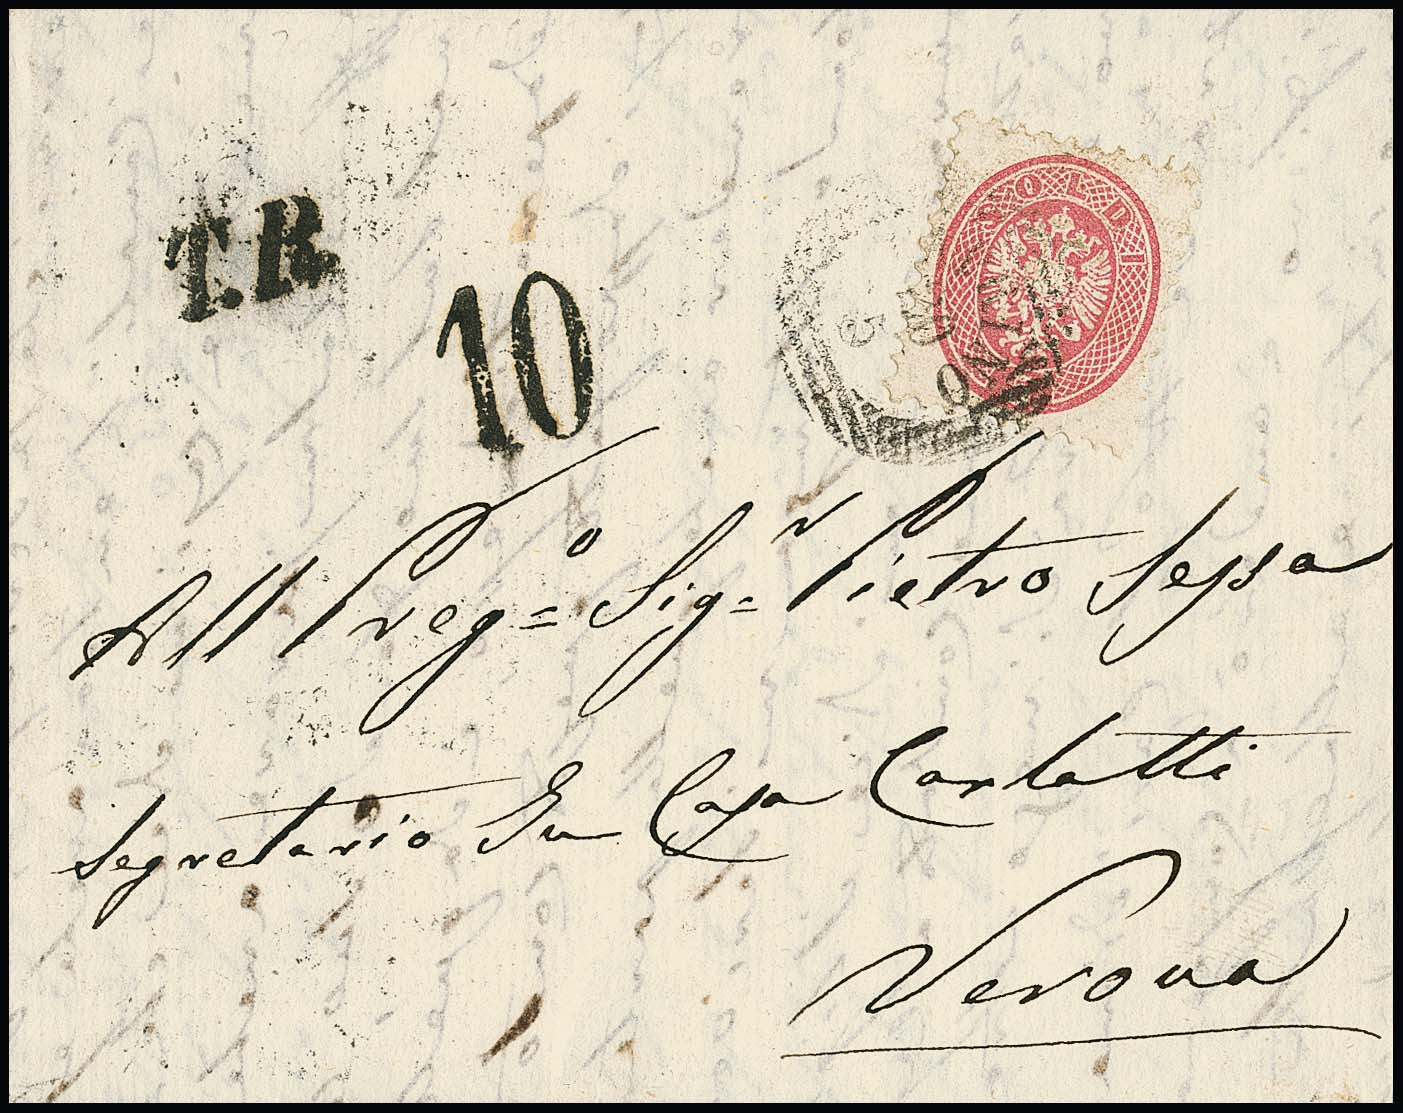 T.R.
10
SOLDI
All Preg.o = Sig.r = Pietro Sessa
Segretario In Casa Carlotti
Verona